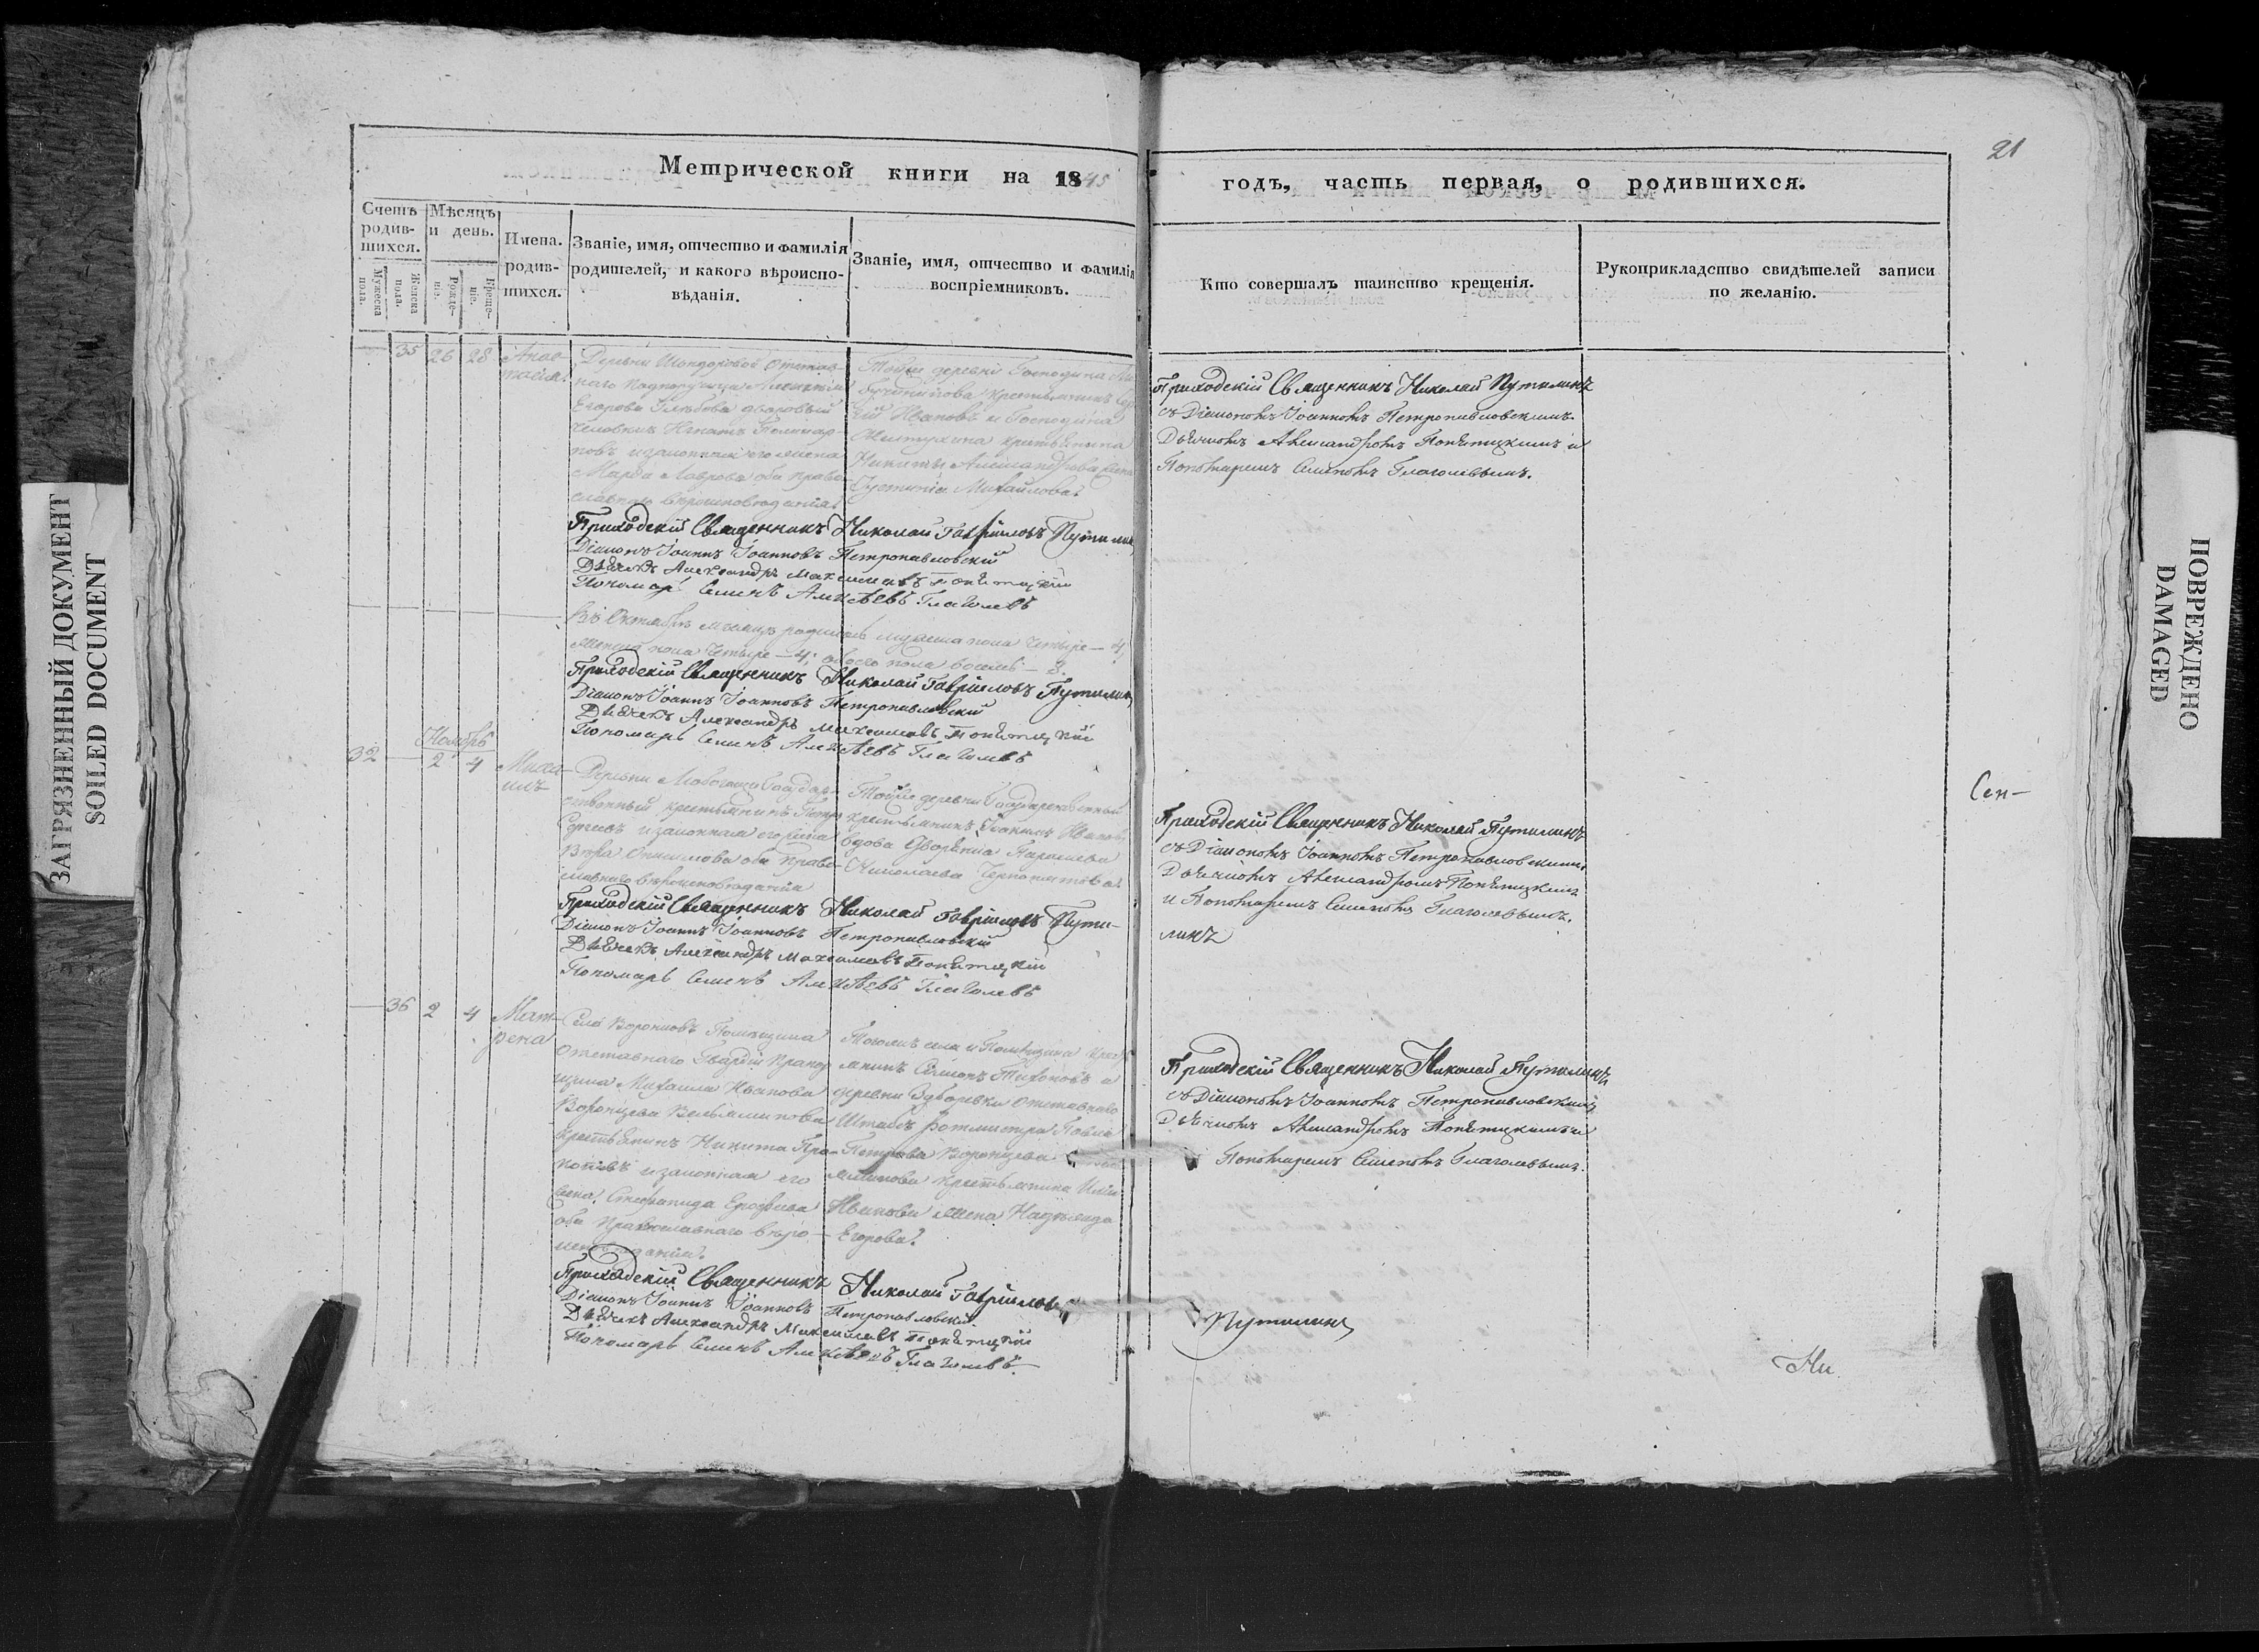 21
Метрической книги на 1845
годъ, часть первая, о родившихся.
Счетъ родив-шихся.
Мужеска пола.
Женска пола.
Мѣсяцъ и день.
Рожде-ніе.
Креще-ніе.
Имена родив-шихся.
Званіе, имя, отчество и фамилія
родителей, и какого вѣроиспо-
вѣданія.
Званіе, имя, отчество и фамилія
воспріемниковъ.
Кто совершалъ таинство крещенія.
Рукоприкладство свидѣтелей записи
по желанію.
35 26 28
Анас-
тасія.
Деревни отстав-
наго Подпоручика
Егорова Глѣбова дворовый
человѣкъ Игнатъ
новъ и законная его жена
Марѳа Лаврова оба право
славнаго вѣроисповѣданія.
Тойже деревни Господина
крестьянинъ
Ивановъ и Господина
крестьянина
Никиты Александрова жена
Михайлова.
Приходскій Священникъ Николай Путилинъ
съ Діакономъ Іоанномъ Петропавловскимъ
Дьячкомъ Александромъ и
Пономаремъ Семеномъ Глаголевымъ.
Приходскій Священникъ Николай Гавріиловъ Путилин
Діаконъ Іоаннъ Іоанновъ Петропавловскій
Дьячекъ Александръ Максимовъ
Пономарь Семенъ Алексѣевъ Глаголевъ
Въ Октябрѣ мѣсяцѣ родилось мужеска пола четыре — 4,
женска пола четыре — 4; обоего пола восемь — 8.
Приходскій Священникъ Николай Гавріиловъ Путилин
Діаконъ Іоаннъ Іоанновъ Петропавловскій
Дьячекъ Александръ Максимовъ
Пономарь Семенъ Алексѣевъ Глаголевъ
Ноябрь
32 — 2 4
Миха-
илъ
Деревни Государ-
ственный крестьянинъ Петръ
Сергеевъ и законная его жена
Вѣра Онисимова оба право-
славнаго вѣроисповѣданія
Тойже деревни Государственный
крестьянинъ Іоакимъ Ивановъ
вдова
Николаева
Сен-
Приходскій Священникъ Николай Путилинъ
съ Діакономъ Іоанномъ Петропавловскимъ
Дьячкомъ Александромъ
и Пономаремъ Семеномъ Глаголевымъ.
Приходскій Священникъ Николай Гавріиловъ Пути-
линъ
Діаконъ Іоаннъ Іоанновъ Петропавловскій
Дьячекъ Александръ Максимовъ
Пономарь Семенъ Алексѣевъ Глаголевъ
— 36 2 4
Мат-
рена
Села Помѣщика
отставнаго Гвардіи Прапор
щика Михаила Иванова
Воронцова Вельяминова
крестьянинъ Никита Про-
кофьевъ и законная его
жена Степанида Ерофѣева
оба православнаго вѣро-
исповѣданія.
Тогожъ села и Помѣщика крес
янинъ Симеонъ Тихоновъ и
деревни отставнаго
Штабсъ Ротмистра Павла
Петрова Воронцова
яминова крестьянина
Иванова жена Надежда
Егорова.
Приходскій Священникъ Николай Путилинъ
съ Діакономъ Іоанномъ Петропавловскимъ
Дьячкомъ Александромъ и
Пономаремъ Семеномъ Глаголевымъ.
Приходскій Священникъ Николай Гавріиловъ
Путилинъ
Діаконъ Іоаннъ Іоанновъ Петропавловскій
Дьячекъ Александръ Максимовъ
Пономарь Семенъ Алексѣевъ Глаголевъ.
Ни
ЗАГРЯЗНЕННЫЙ ДОКУМЕНТ
SOILED DOCUMENT
ПОВРЕЖДЕНО
DAMAGED